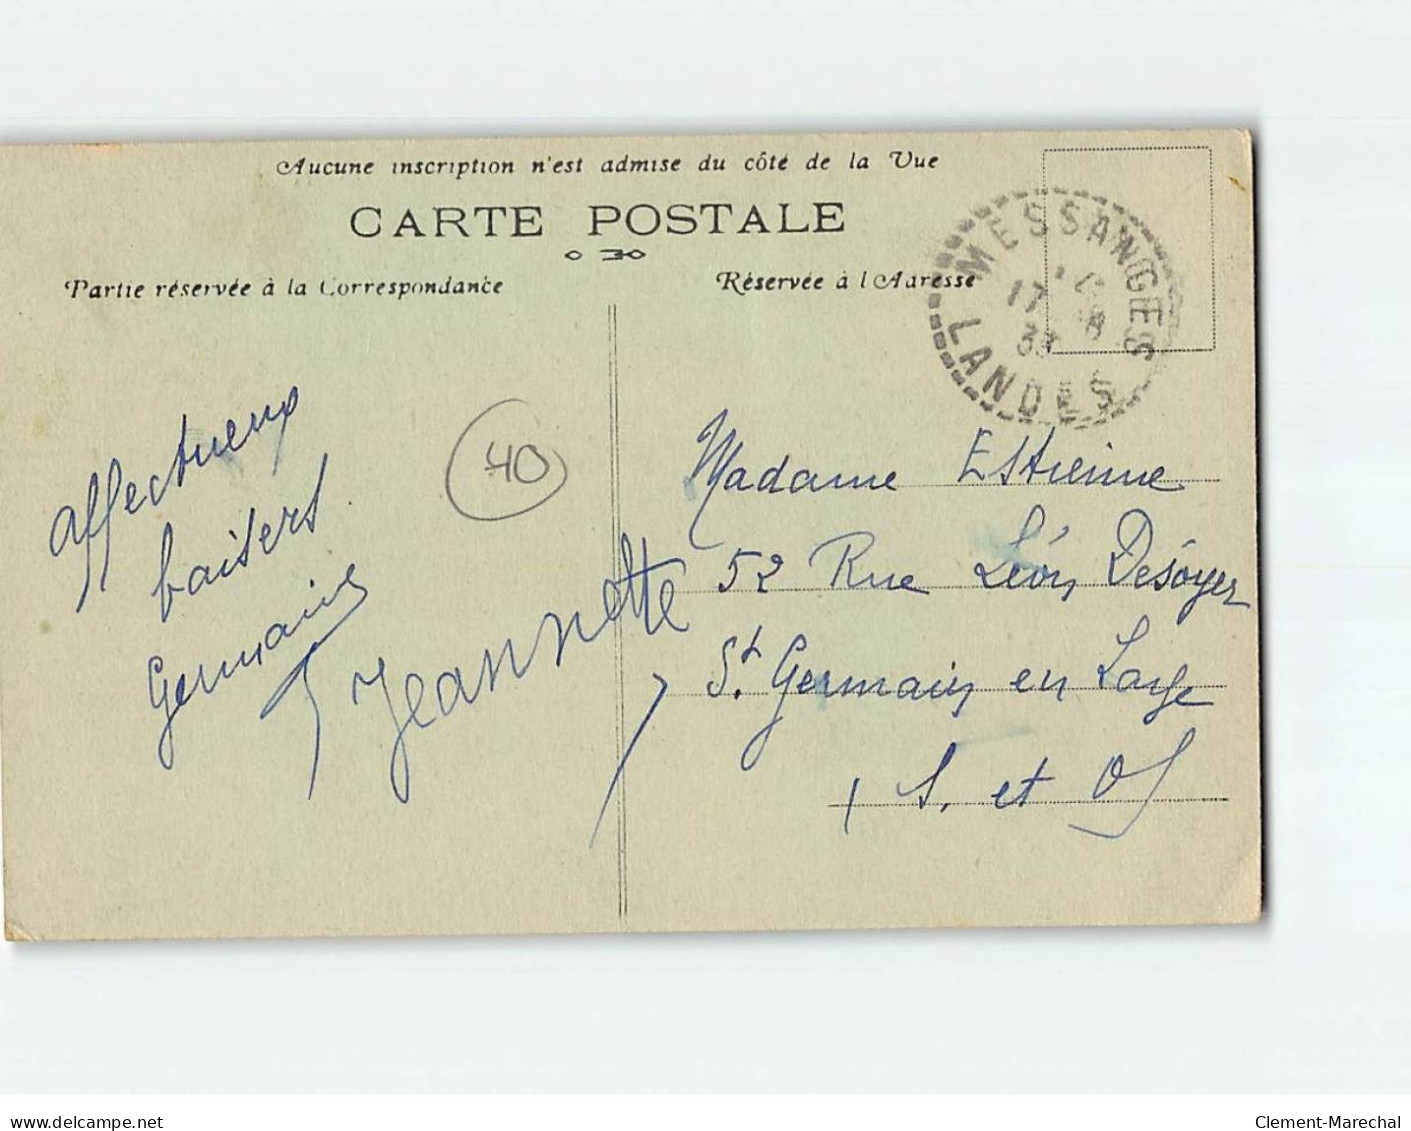 Aucune inscription n'est admise du côté de la Vue
CARTE POSTALE
Partie réservée à la Correspondance
Réservée à l'Adresse
MESSANGES
17 8
33
LANDES
40
affectueux
baisers
Germaine
Jeannette
Madame Estienne
52 Rue Léon Desoyer
St. Germain en Laye
S. et O
delcampe.net
Clement-Marechal